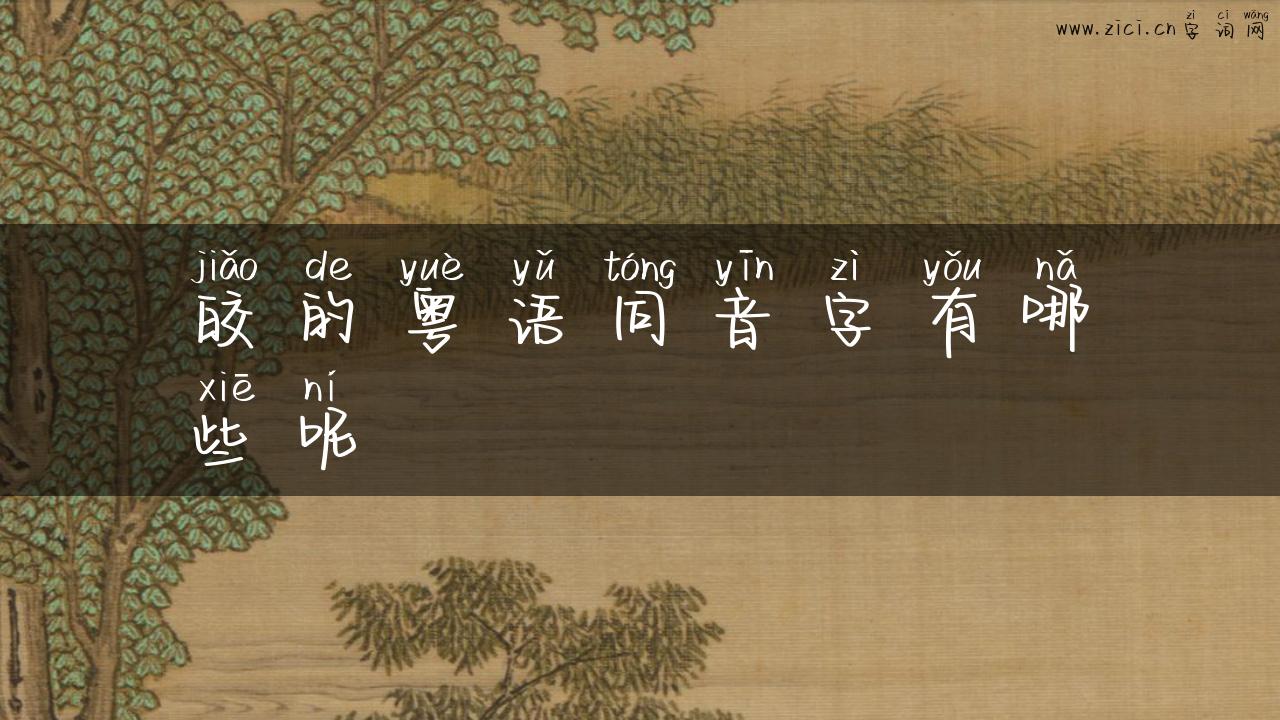 zì cí wǎng
www.zici.cn字词网
jiǎo de yuè yǔ tóng yīn zì yǒu nǎ
皎的粤语同音字有哪
xiē ní
些呢